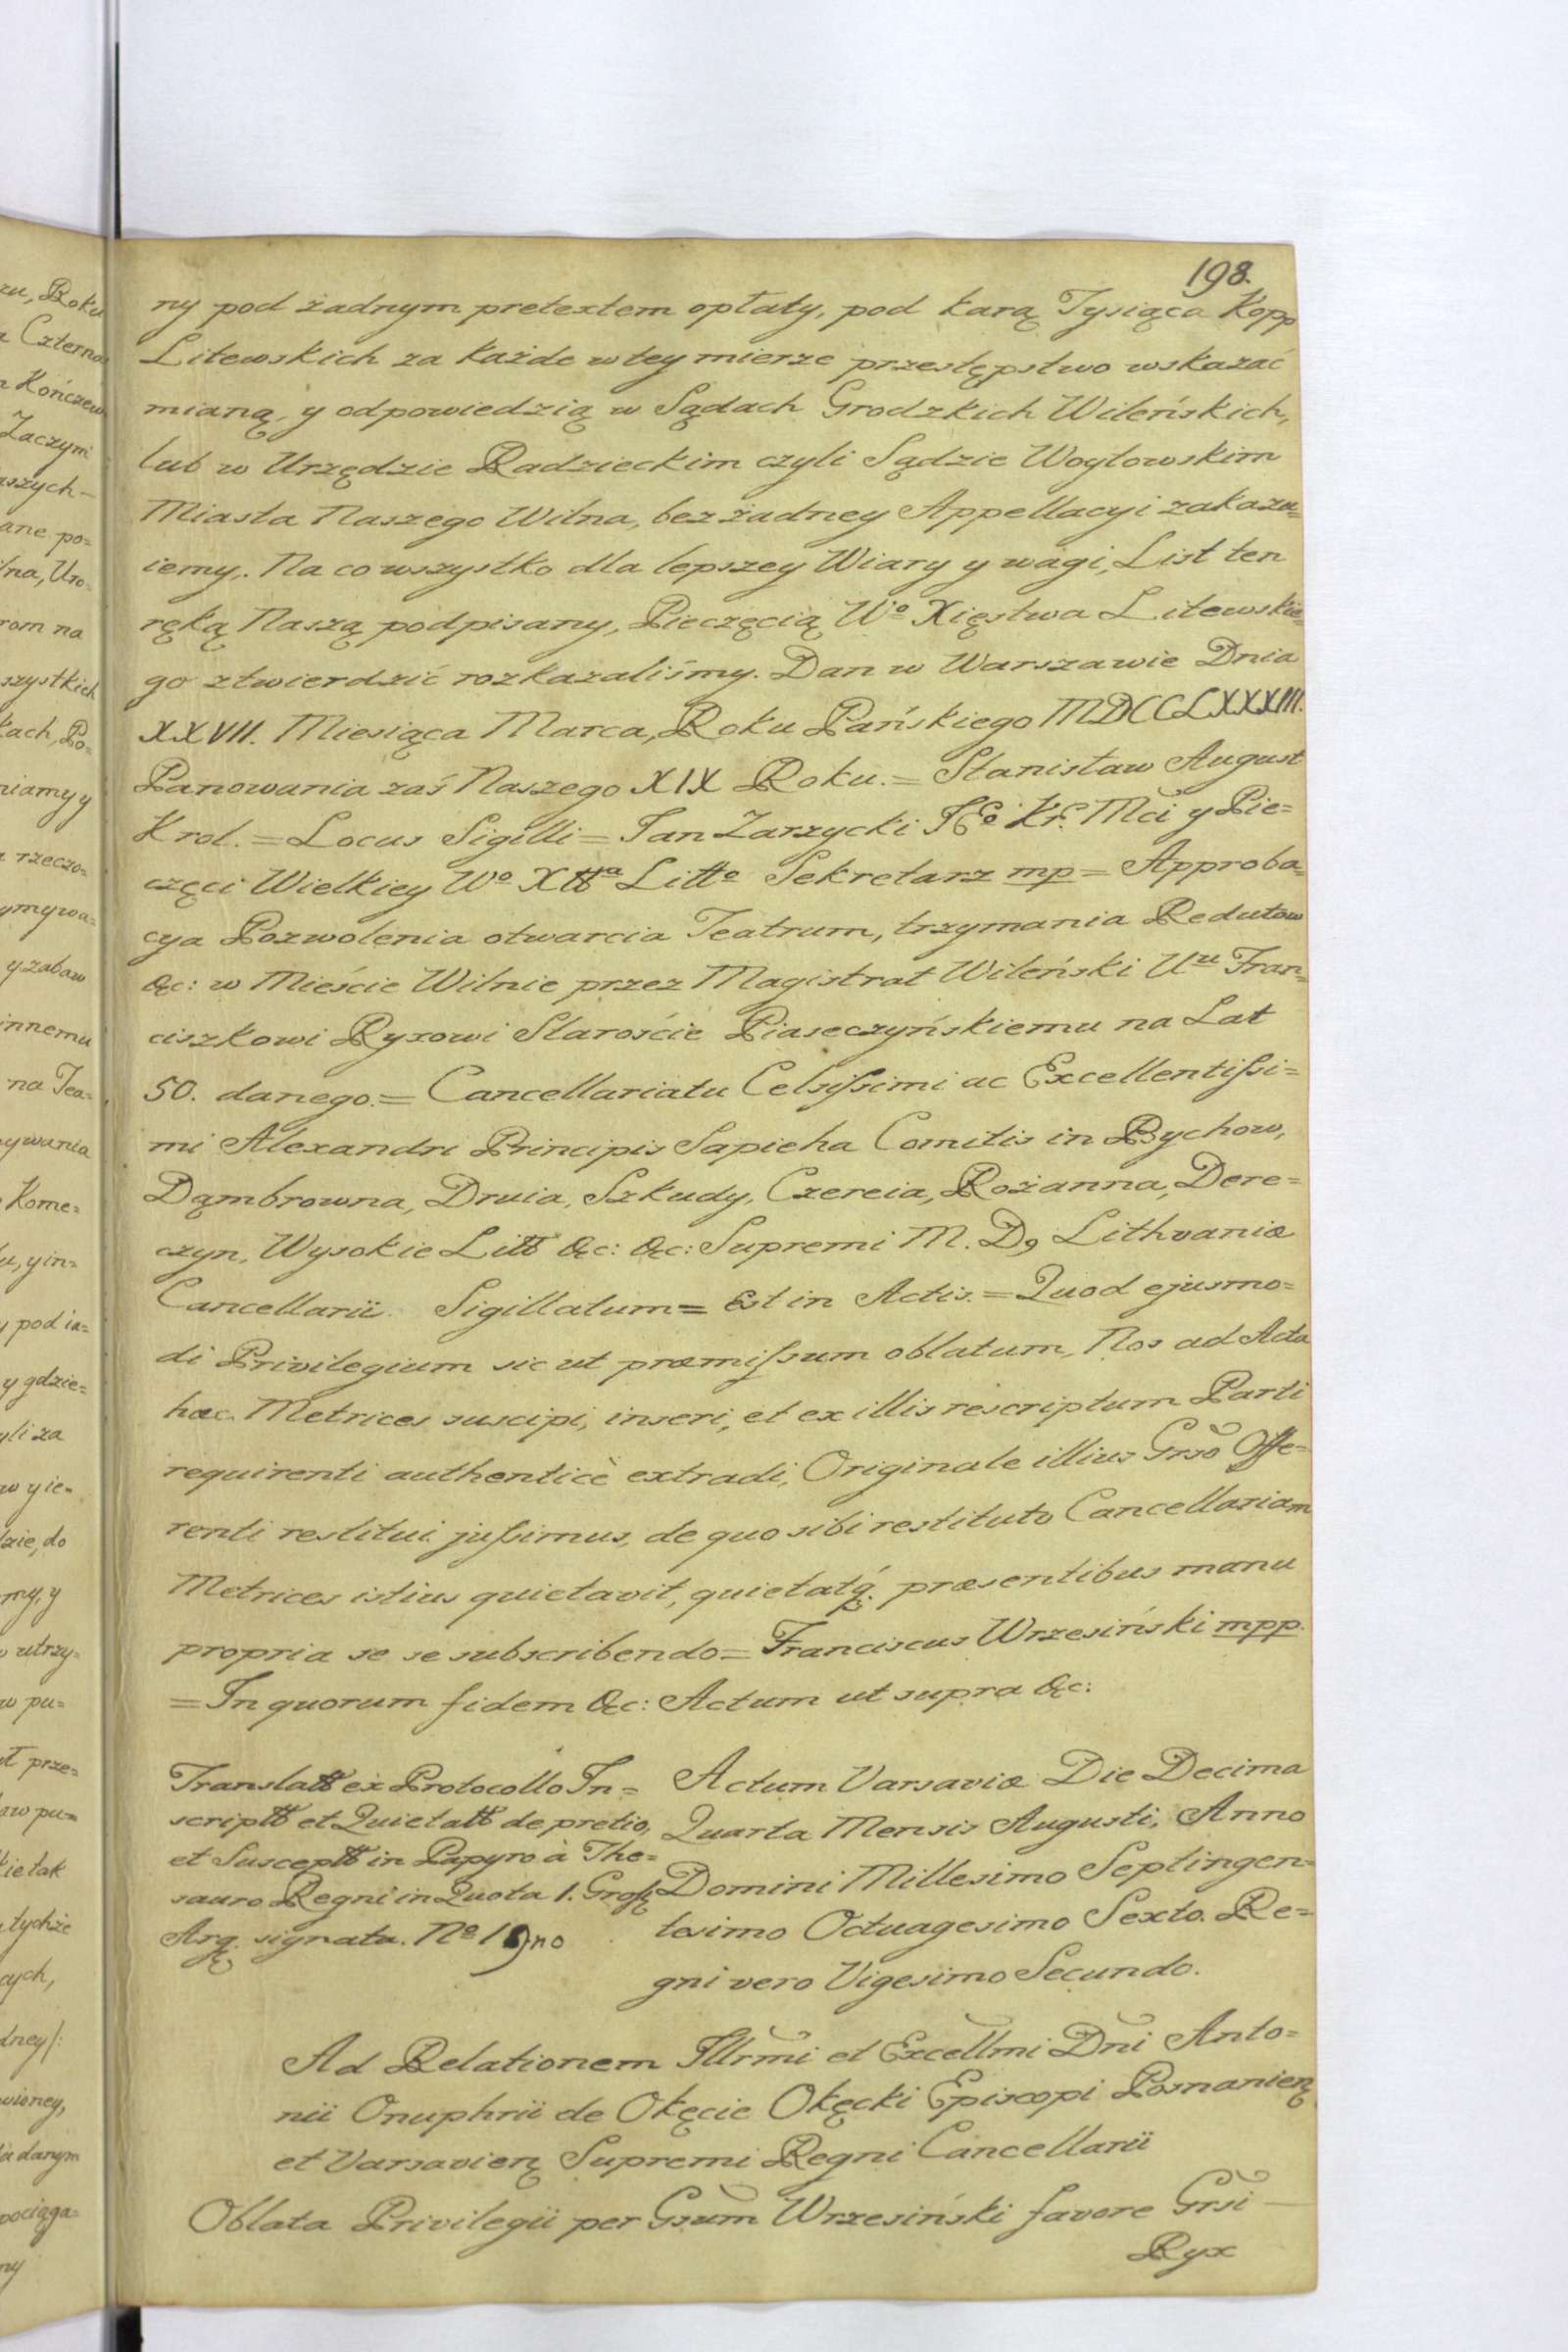 198.
ny pod żadnym pretextem opłaty, pod karą Tysiąca Kopp
Litewskich za każde w tey mierze przestępstwo wskazać
mianą, y odpowiedzią w Sądach Grodzkich Wileńskich,
lub w Urzędzie Radzieckim czyli Sądzie Woytowskim
Miasta Naszego Wilna, bez żadney Appellacyi zakazu=
iemy. Na co wszystko dla lepszey Wiary y wagi, List ten
ręką Naszą podpisany, Pieczęcią Wº Xięstwa Litewskie=
go ztwierdzić rozkazaliśmy. Dan w Warszawie Dnia
XXVII. Miesiąca Marca, Roku Pańskiego MDCCLXXXIII.
Panowania zaś Naszego XIX Roku. = Stanisław August
Krol. = Locus Sigilli = Jan Zarzycki JEº Kr. Mći y Pie=
częci Wielkiey Wº Xttª Littº Sekretarz mp = Approba=
cya Pozwolenia otwarcia Teatrum, trzymania Redutow
&c: w Mieście Wilnie przez Magistrat Wileński Uᶻᵘ Fran=
ciszkowi Ryxowi Staroście Piaseczyńskiemu na Lat
50. danego. = Cancellariatu Celsissimi ac Excellentissi=
mi Alexandri Principis Sapieha Comitis in Bychow,
Dąmbrowna, Druia, Szkudy, Czereia, Rożanna, Dere=
czyn, Wysokie Litt &c: &c: Supremi M. D, Lithvaniæ
Cancellarii. Sigillatum = Est in Actis. = Quod ejusmo=
di Privilegium sic ut præmissum oblatum, Nos ad Acta
hæc Metrices suscipi, inseri, et ex illis rescriptum Parti
requirenti authenticè extradi, Originale illius Grsõ Offe=
renti restitui jussimus, de quo sibi restituto Cancellariam
Metrices istius quietavit, quietatq́. præsentibus manu
propria se se subscribendo = Franciscus Wrzesiński mpp.
= In quorum fidem &c: Actum ut supra &c:
Translatt ex Protocollo In=
scriptt et Quietatt de pretio,
et Susceptt in Papyro à The=
sauro Regni in Quota 1. Gross
Arg. signata. Nº
Actum Varsaviæ Die Decima
Quarta Mensis Augusti, Anno
Domini Millesimo Septingen=
tesimo Octuagesimo Sexto. Re=
gni vero Vigesimo Secundo.
Ad Relationem Illrmi et Excellmi Dñi Anto=
nii Onuphrii de Okęcie Okęcki Episcopi Posnanienę
et Varsavienę Supremi Regni Cancellarii
Oblata Privilegii per Gsum Wrzesiński favore Grsi —
Ryx